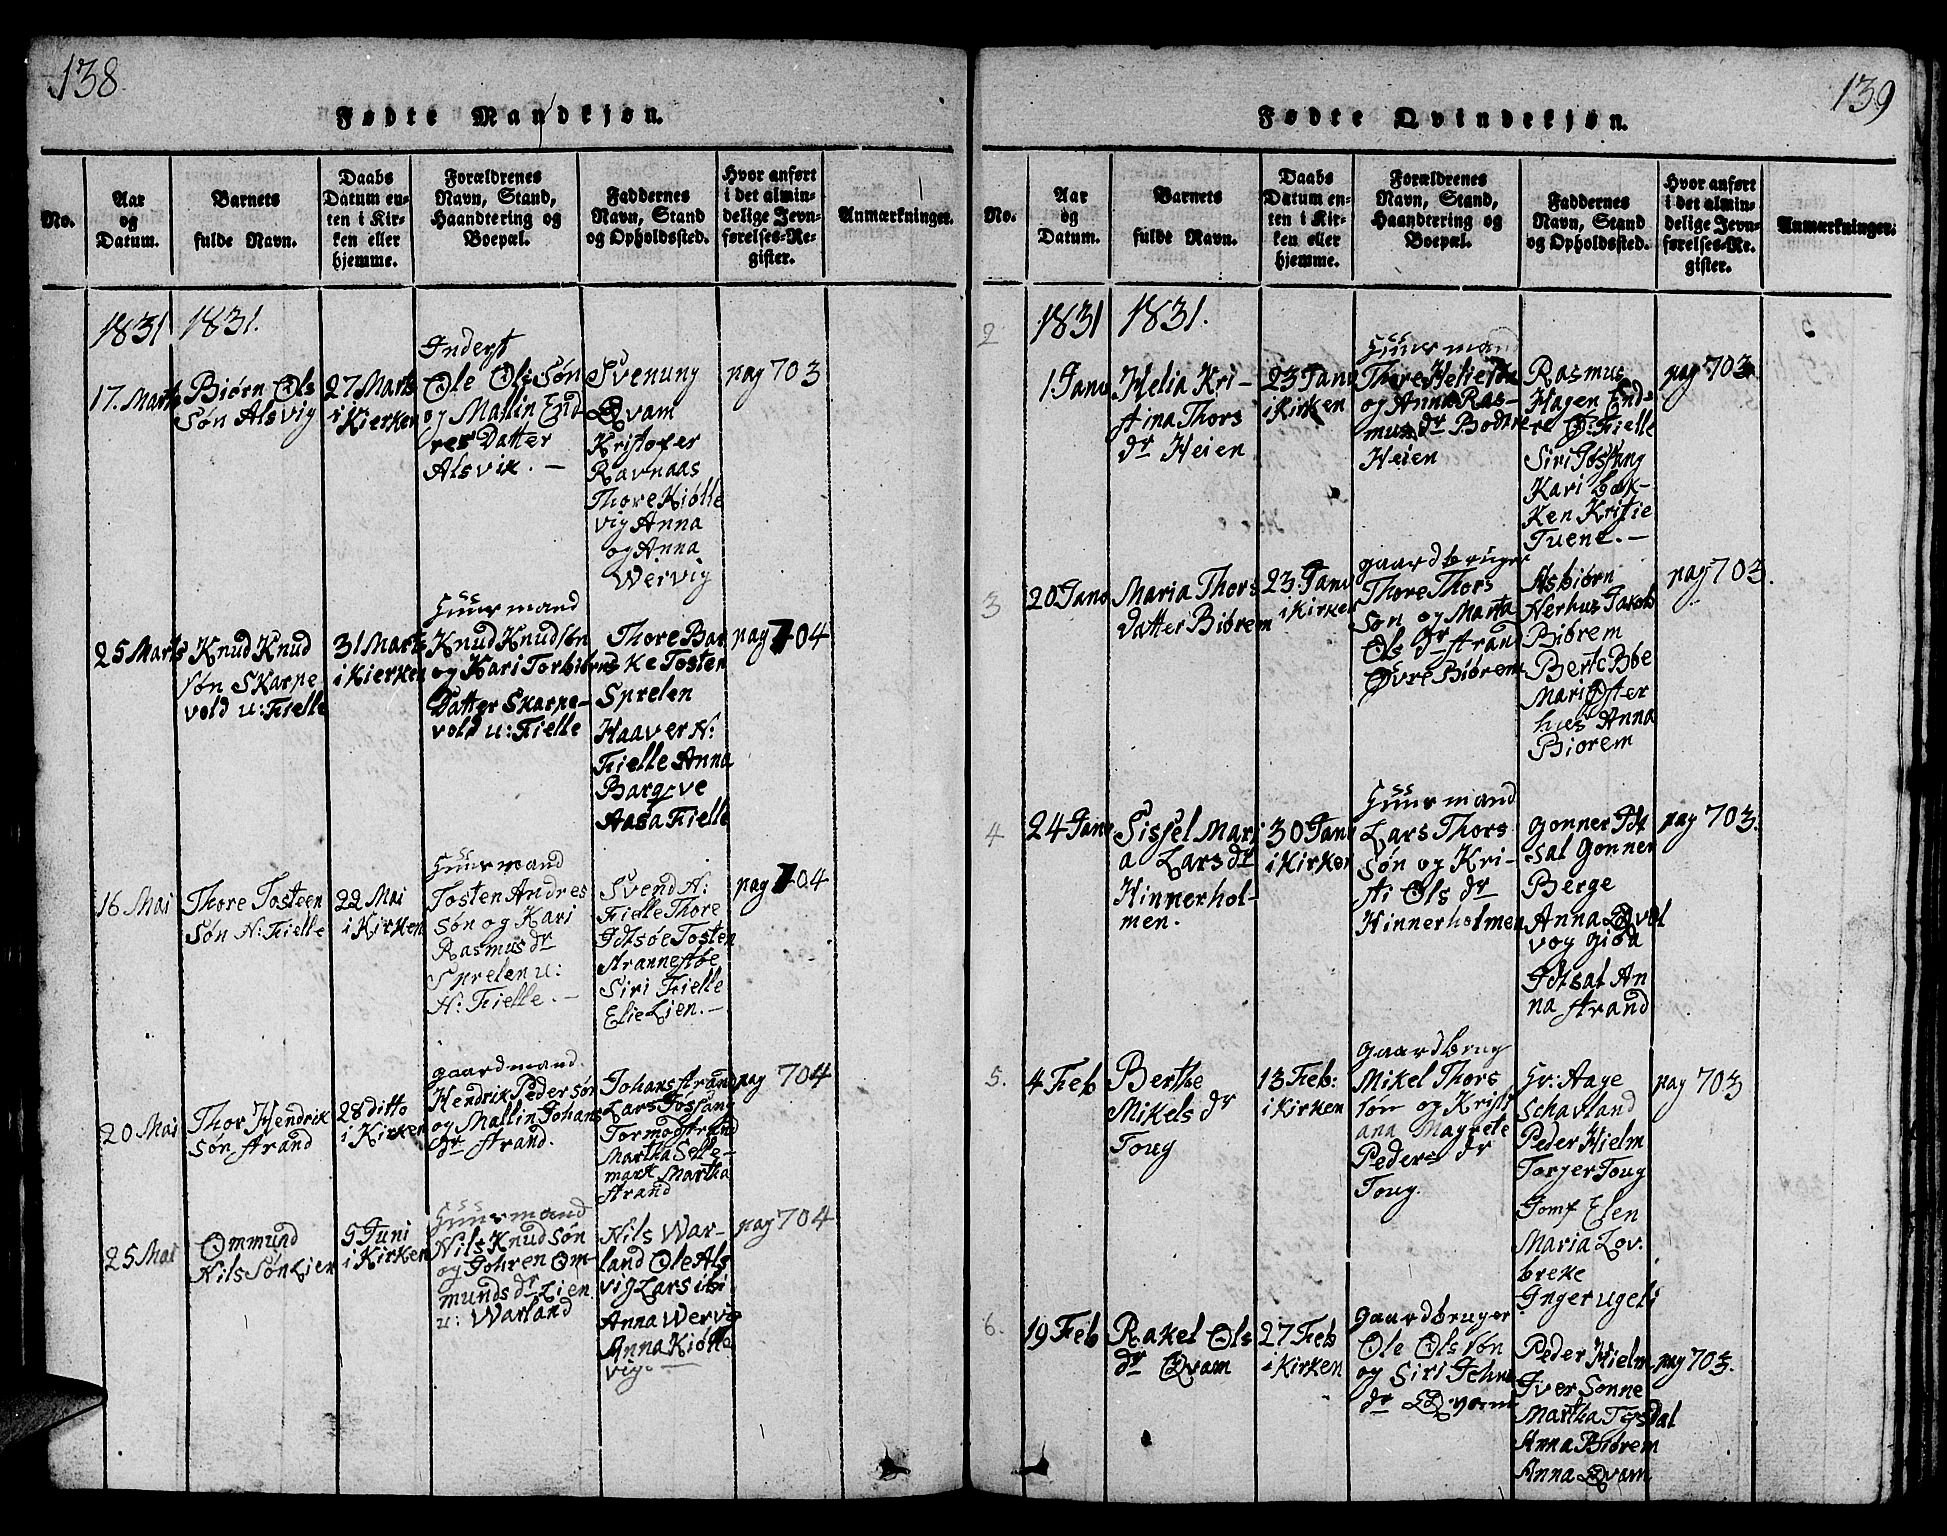 138
Fødte Mandkjøn.
No.
Aar
og
Datum.
Barnets
fulde Navn.
Daabs
Datum en-
ten i Kir-
ken eller
hjemme.
Forældrenes
Navn, Stand,
Haandtering og
Boepæl.
Faddernes
Navn, Stand
og Opholdssted.
Hvor anført
i det almin-
delige Jevn-
førelses-Re-
gister.
Anmærkninger.
1831
1831.
17. Marts
Biørn Ols
Søn Alsvig
27 Marts
i Kierken
Inderst
Ole Ols Søn
og Mallin End-
res Datter
Alsvik. —
Svenung
Qvam
Kristofer
Ravnaas
Thore Kiølle
vig Anna
og Anna
Wervig
pag 703
25 Marts
Knud Knud
søn Skarpe
vold u: Fielle
31 Marts
i Kierken
Huusmand
Knud Knudsøn
og Kari Torbiørns
Datter Skarpe-
vold u: Fielle
Thore Bar
ke Tosten
Sprelen
Haaver N:
Fielle Anna
Bargeve
Aasa Fielle
pag 704
16 Mai
Thore Tosteen
Søn N: Fielle
22 Mai
i Kirken
Huusmand
Tosten Andres
Søn og Kari
Rasmus dr
Sprelen u:
N: Fielle. —
Svend N:
Fielle Thore
Idtsøe Tosten
Strannestøe
Siri Fielle
Elie Lien. —
pag 704
20 Mai
Thor Hendrik
søn Strand
28 ditto
i Kirken
gaardmand.
Hendrik Peder søn
og Mallin Johans
dr Strand.
Johan Strand
Lars Fossan
Tormog Strand
Martha Selle-
mark Martha
Strand
pag 704
25 Mai
Ommund
Nils Søn Lien
5 Juni
i Kirken
Huusmand
Nils Knud søn
og Gohren Om-
munds dr Lien
u: Warland
Nils War-
land Ole Als
vig Lars ibi
Anna Wervig
Anna Kiølle
vig. —
pag 704
139
Fødte Qvindekjøn.
No.
Aar
og
Datum.
Barnets
fulde Navn.
Daabs
Datum en-
ten i Kir-
ken eller
hjemme.
Forældrenes
Navn, Stand,
Haandtering og
Boepæl.
Faddernes
Navn, Stand
og Opholdssted.
Hvor anført
i det almin-
delige Jevn-
førelses-Re-
gister.
Anmærkninger.
2
1831
1831.
1 Janu
Helia Kri-
stina Thors
dr Heien
23 Janu
i Kirken
Huusmand
Thore Helie Søn
og Anna Ras-
mus dr Bodne
Heien
Rasmus
Hagen End-
re Ø: Fielle
Siri Jøssang
Kari Bak-
ken Kristie
Tuene. —
pag 703
3
20 Janu
Maria Thors
datter Biørem
23. Janu
i Kirken
gaardbruger
Thore Thors
Søn og Marta
Ols dr Strand
Øvre Biørem
Asbiørn
Nerhus Jakob
Biørem
Berte Bøe
Mari Øster
hus Anna
Biorem
pag 703.
4
24 Janu
Sissel Mari
a Lars dr
Hinnerhol-
men.
30 Janu
i Kirken
Huusmand
Lars Thors
Søn og Kri-
sti Ols dr
Hinnerholmen
gonner Idt
sal Gonner
Berge
Anna Qval
vog Gioa
Idtsal An
na Strand
pag 703.
5.
4 Feb
Berthe
Mikels dr
Toug
13 Feb:
i Kirken
gaardbrug
Mikel Thors
søn og Krist
ana Magrele
Peders dr
Toug.
Hr: Aage
Schavland
Peder Hielm
Torger Toug
Jomf Elen
Maria Lov.
breke
Inger ugeli
pag 703
6.
19 Feb
Rakel Ols
dr Qvam
27 Feb
i Kirken
gaardbruger
Ole Ols søn
og Siri Johns
dr Qvam
Peder Hielm
Iver Sonne
Martha Tysdal
Anna Biørem
Anna Qvam
pag 703.